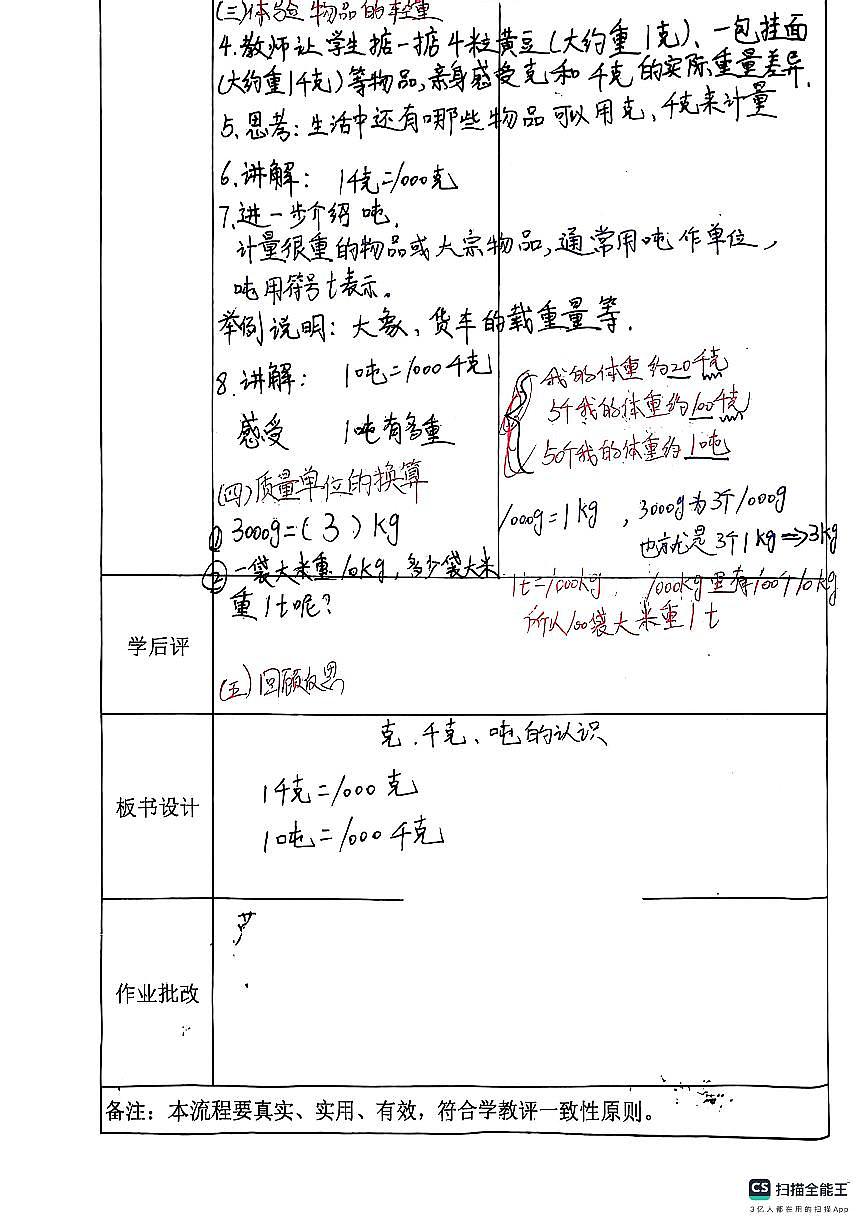 (三)体验物品的轻重
4.教师让学生掂一掂4粒黄豆(大约重1克)、一包挂面
(大约重1千克)等物品,亲身感受克和千克的实际重量差异.
5.思考:生活中还有哪些物品可以用克、千克来计量
6.讲解: 1千克=1000克
7.进一步介绍吨.
计量很重的物品或大宗物品,通常用吨作单位,
吨用符号t表示。
举例说明:大象、货车的载重量等.
8.讲解: 1吨=1000千克
感受 1吨有多重
我的体重约20千克
5个我的体重约100千克
50个我的体重约1吨
(四)质量单位的换算
① 3000g=(3)kg
1000g=1kg ,3000g为3个1000g
也就是3个1kg⇒3kg
② 一袋大米重10kg,多少袋大米
重1t呢?
1t=1000kg, 1000kg里有100个10kg
所以100袋大米重1t
学后评
(五)回顾反思
板书设计
克.千克、吨的认识
1千克=1000克
1吨=1000千克
作业批改
备注:本流程要真实、实用、有效,符合学教评一致性原则。
CS 扫描全能王
3亿人都在用的扫描App